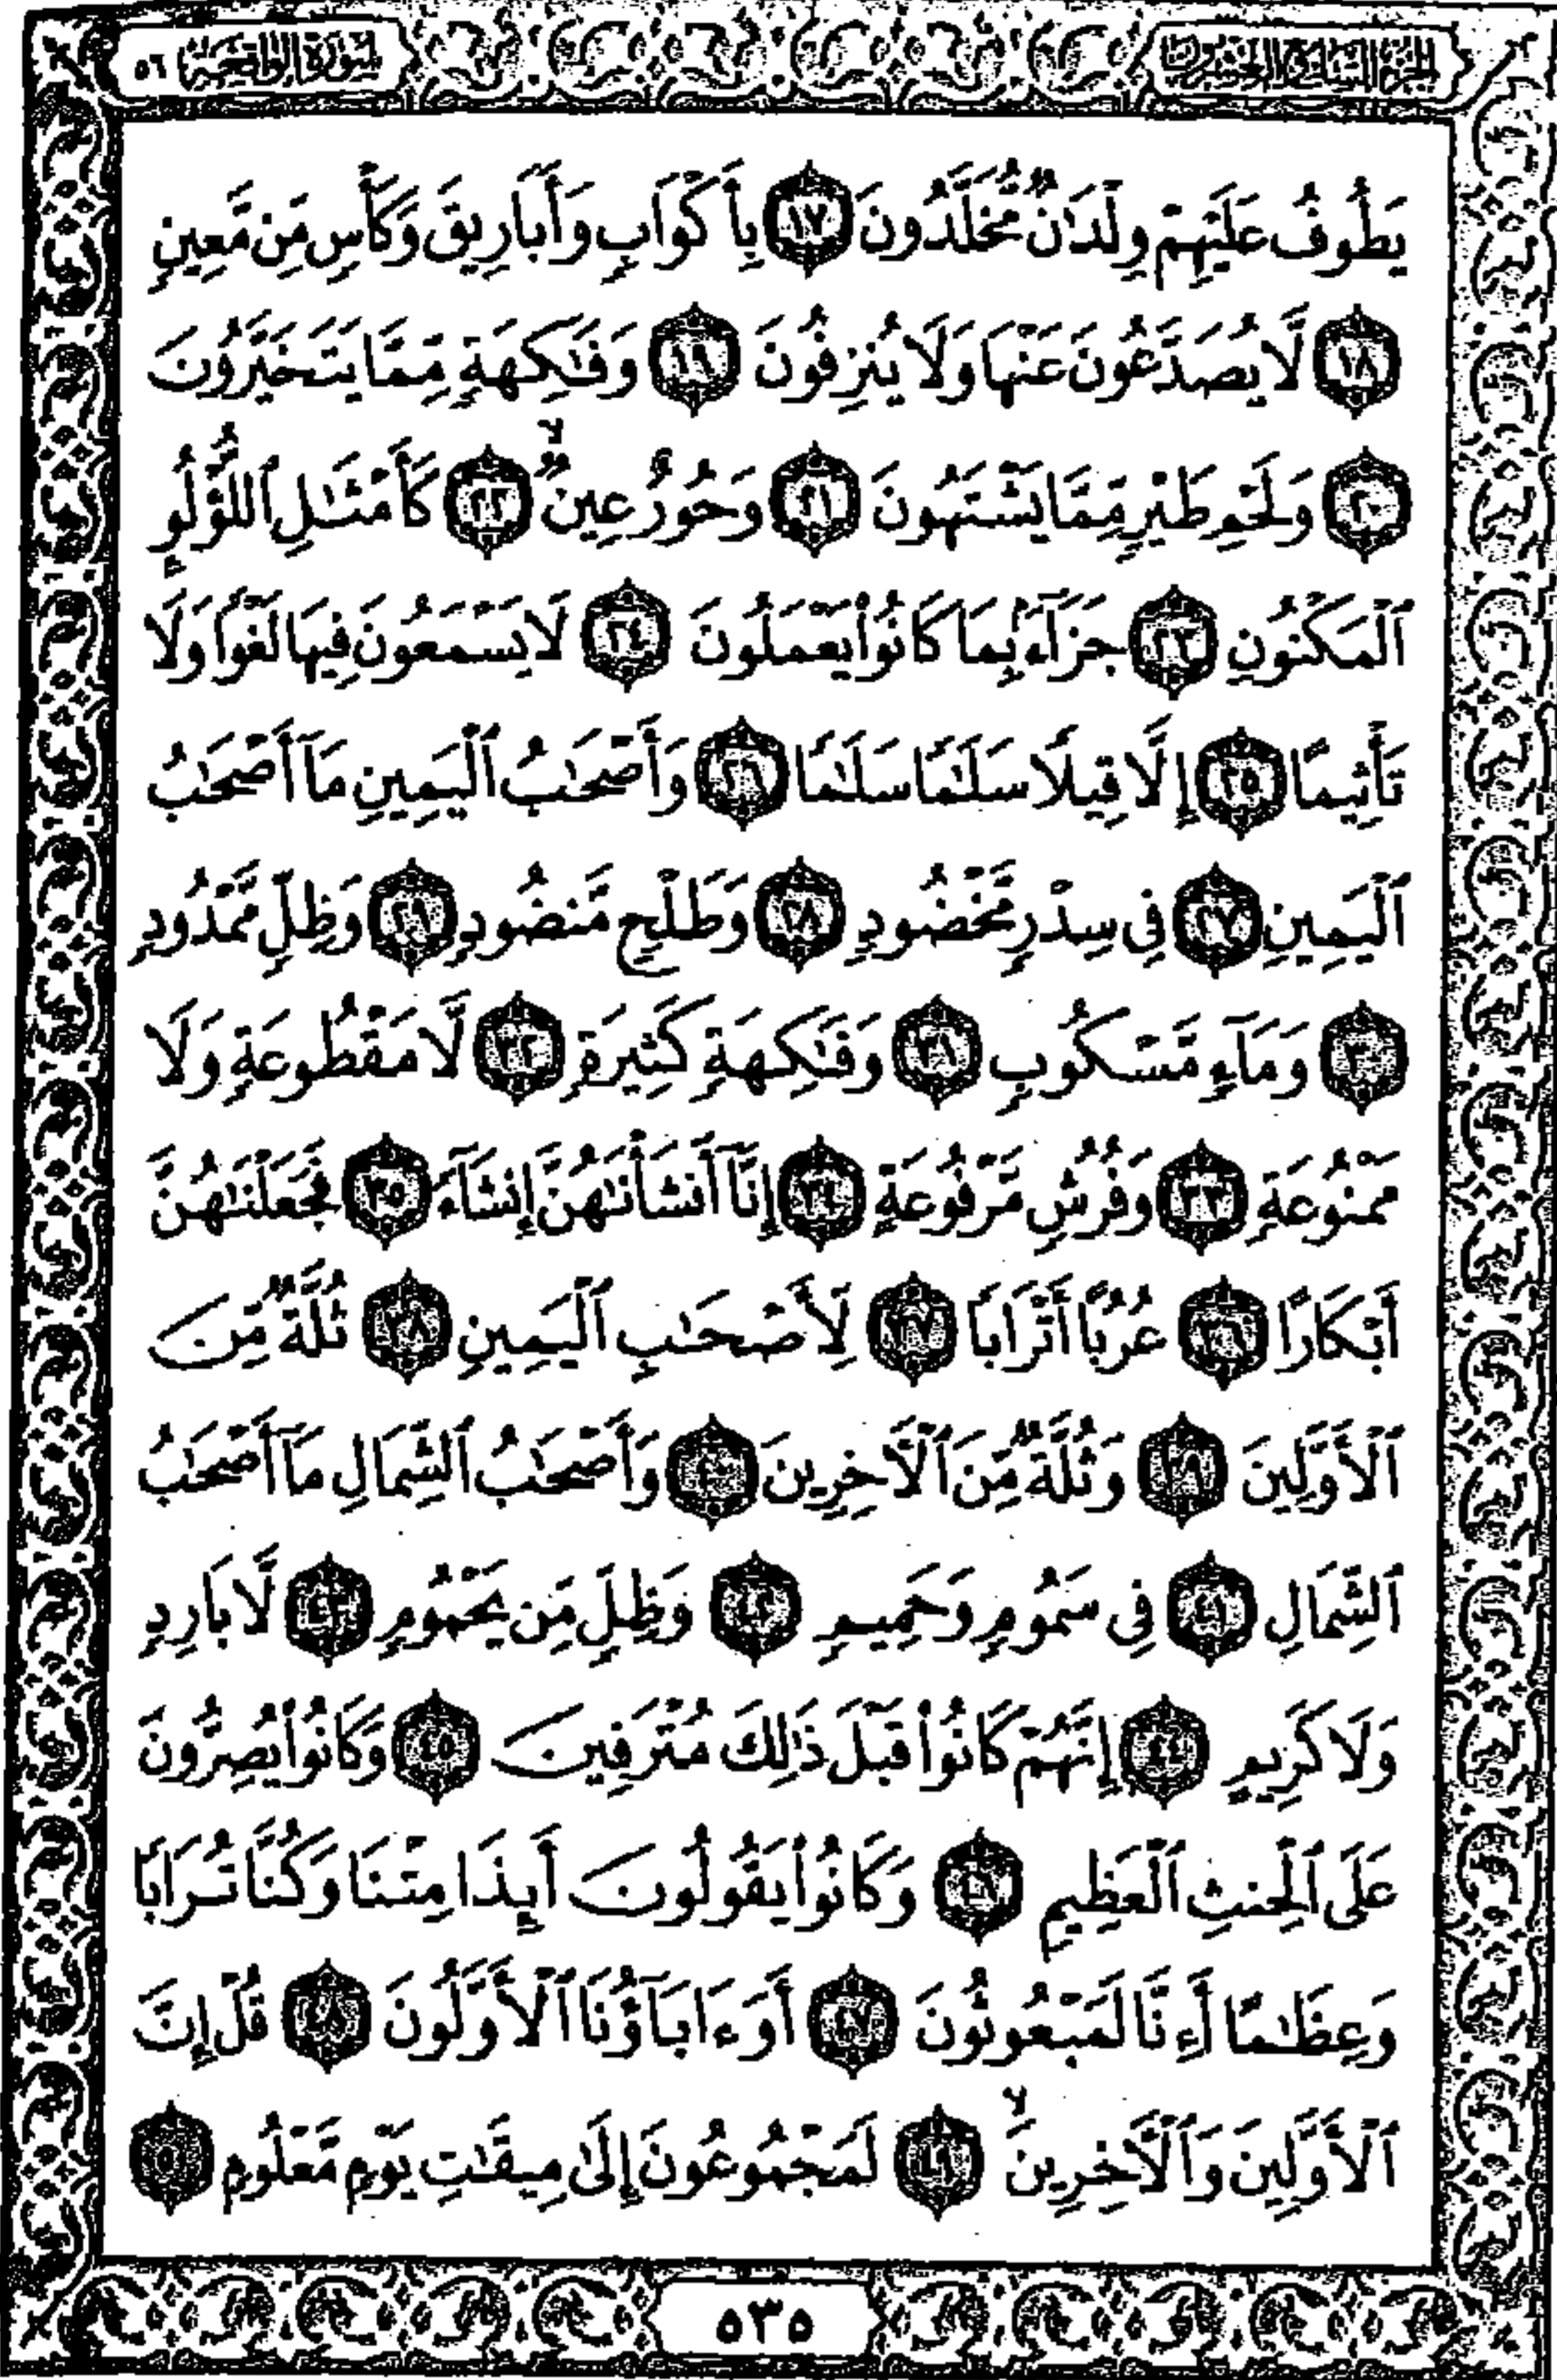 الجزء السابع والعشرون
سورة الواقعة ٥٦
يَطُوفُ عَلَيْهِمْ وِلْدَٰنٌ مُّخَلَّدُونَ ١٧ بِأَكْوَابٍ وَأَبَارِيقَ وَكَأْسٍ مِّن مَّعِينٍ
١٨ لَّا يُصَدَّعُونَ عَنْهَا وَلَا يُنزِفُونَ ١٩ وَفَٰكِهَةٍ مِّمَّا يَتَخَيَّرُونَ
٢٠ وَلَحْمِ طَيْرٍ مِّمَّا يَشْتَهُونَ ٢١ وَحُورٌ عِينٌ ۙ ٢٢ كَأَمْثَٰلِ ٱللُّؤْلُؤِ
ٱلْمَكْنُونِ ٢٣ جَزَآءًۢ بِمَا كَانُوا۟ يَعْمَلُونَ ٢٤ لَا يَسْمَعُونَ فِيهَا لَغْوًا وَلَا
تَأْثِيمًا ٢٥ إِلَّا قِيلًا سَلَٰمًا سَلَٰمًا ٢٦ وَأَصْحَٰبُ ٱلْيَمِينِ مَآ أَصْحَٰبُ
ٱلْيَمِينِ ٢٧ فِى سِدْرٍ مَّخْضُودٍ ٢٨ وَطَلْحٍ مَّنضُودٍ ٢٩ وَظِلٍّ مَّمْدُودٍ
٣٠ وَمَآءٍ مَّسْكُوبٍ ٣١ وَفَٰكِهَةٍ كَثِيرَةٍ ٣٢ لَّا مَقْطُوعَةٍ وَلَا
مَمْنُوعَةٍ ٣٣ وَفُرُشٍ مَّرْفُوعَةٍ ٣٤ إِنَّآ أَنشَأْنَٰهُنَّ إِنشَآءً ٣٥ فَجَعَلْنَٰهُنَّ
أَبْكَارًا ٣٦ عُرُبًا أَتْرَابًا ٣٧ لِّأَصْحَٰبِ ٱلْيَمِينِ ٣٨ ثُلَّةٌ مِّنَ
ٱلْأَوَّلِينَ ٣٩ وَثُلَّةٌ مِّنَ ٱلْءَاخِرِينَ ٤٠ وَأَصْحَٰبُ ٱلشِّمَالِ مَآ أَصْحَٰبُ
ٱلشِّمَالِ ٤١ فِى سَمُومٍ وَحَمِيمٍ ٤٢ وَظِلٍّ مِّن يَحْمُومٍ ٤٣ لَّا بَارِدٍ
وَلَا كَرِيمٍ ٤٤ إِنَّهُمْ كَانُوا۟ قَبْلَ ذَٰلِكَ مُتْرَفِينَ ٤٥ وَكَانُوا۟ يُصِرُّونَ
عَلَى ٱلْحِنثِ ٱلْعَظِيمِ ٤٦ وَكَانُوا۟ يَقُولُونَ أَئِذَا مِتْنَا وَكُنَّا تُرَابًا
وَعِظَٰمًا أَءِنَّا لَمَبْعُوثُونَ ٤٧ أَوَءَابَآؤُنَا ٱلْأَوَّلُونَ ٤٨ قُلْ إِنَّ
ٱلْأَوَّلِينَ وَٱلْءَاخِرِينَ ۙ ٤٩ لَمَجْمُوعُونَ إِلَىٰ مِيقَٰتِ يَوْمٍ مَّعْلُومٍ ٥٠
٥٣٥